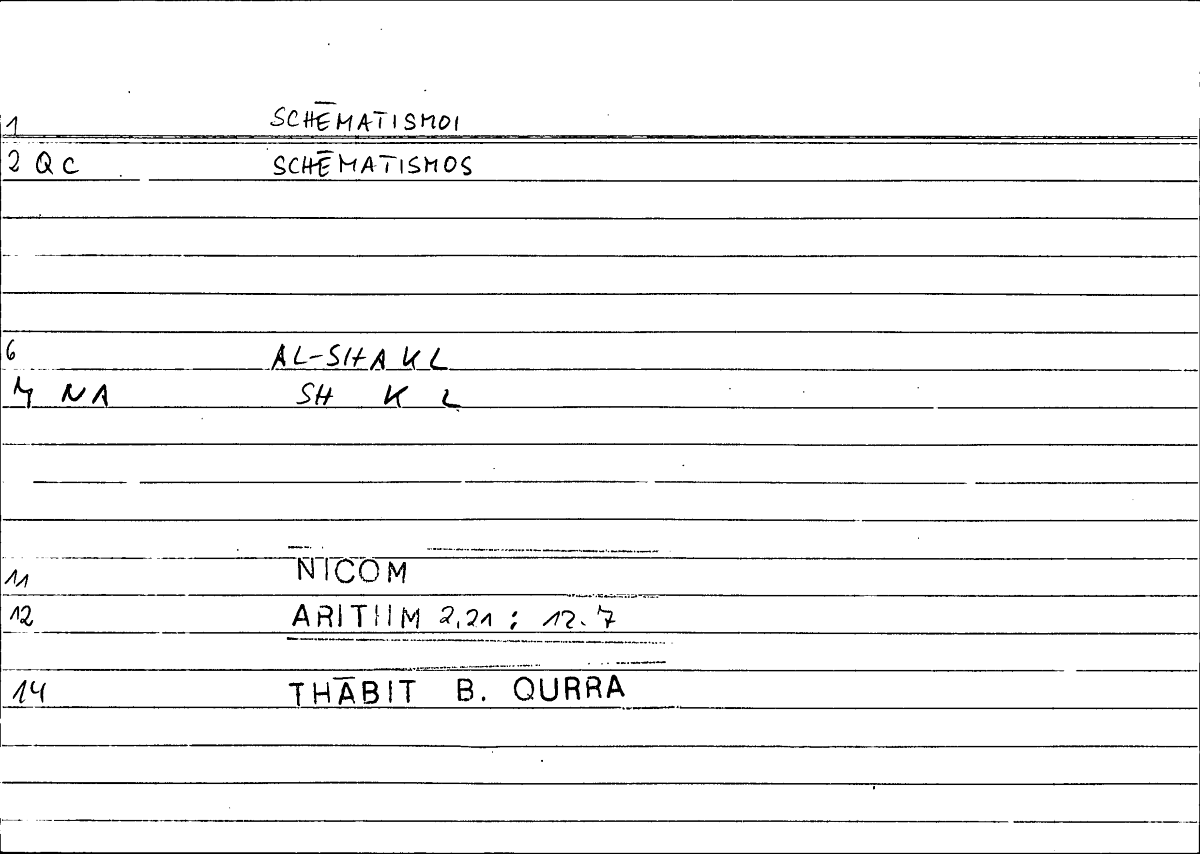 1 SCHĒMATISMOI
2 QC SCHĒMATISMOS
6 AL-SHAKL
7 NA SH K L
11 NICOM
12 ARITHM 2,21 ; 12.7
14 THĀBIT B. QURRA